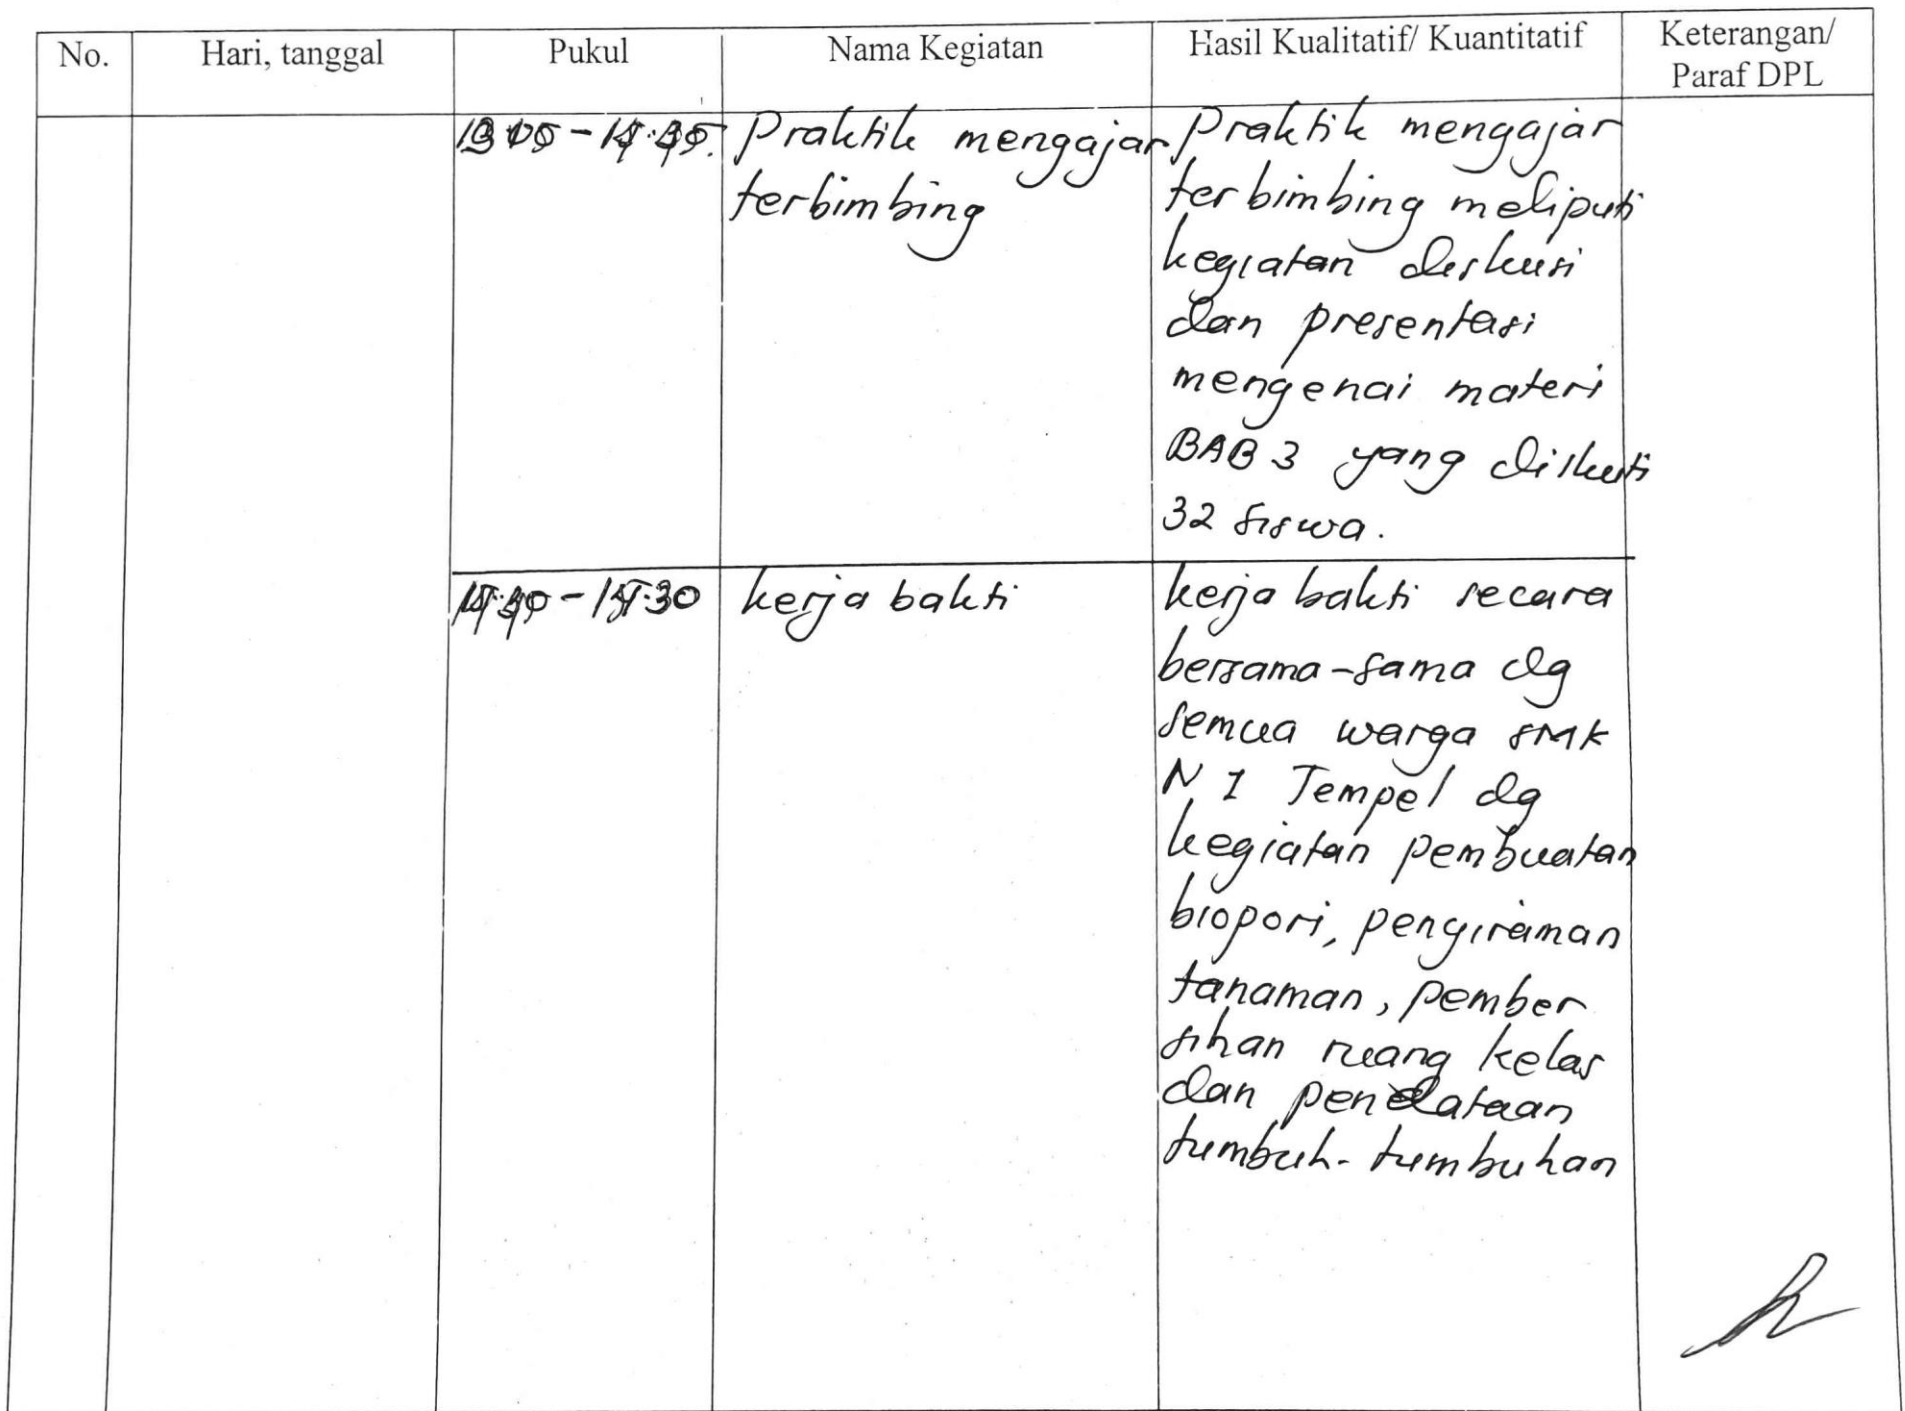 No.
Hari, tanggal
Pukul
Nama Kegiatan
Hasil Kualitatif/ Kuantitatif
Keterangan/
Paraf DPL
Praktik mengajar
terbimbing
Praktik mengajar
terbimbing meliputi
kegiatan diskusi
dan presentasi
mengenai materi
BAB 3 yang diikuti
32 siswa.
kerja bakti
kerja bakti secara
bersama-sama dg
semua warga SMK
N 1 Tempel dg
kegiatan pembuatan
biopori, pengiraman
tanaman, pember
sihan ruang kelas
dan pendataan
tumbuh-tumbuhan